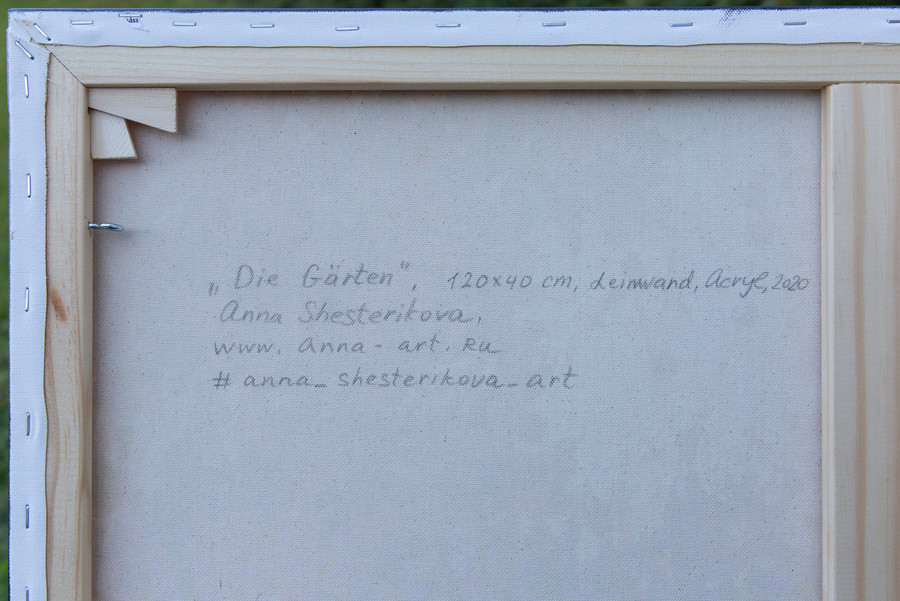 „Die Gärten“, 120x40 cm, Leinwand, Acryl, 2020
Anna Shesterikova,
www. anna - art. Ru
# anna_ shesterikova_ art